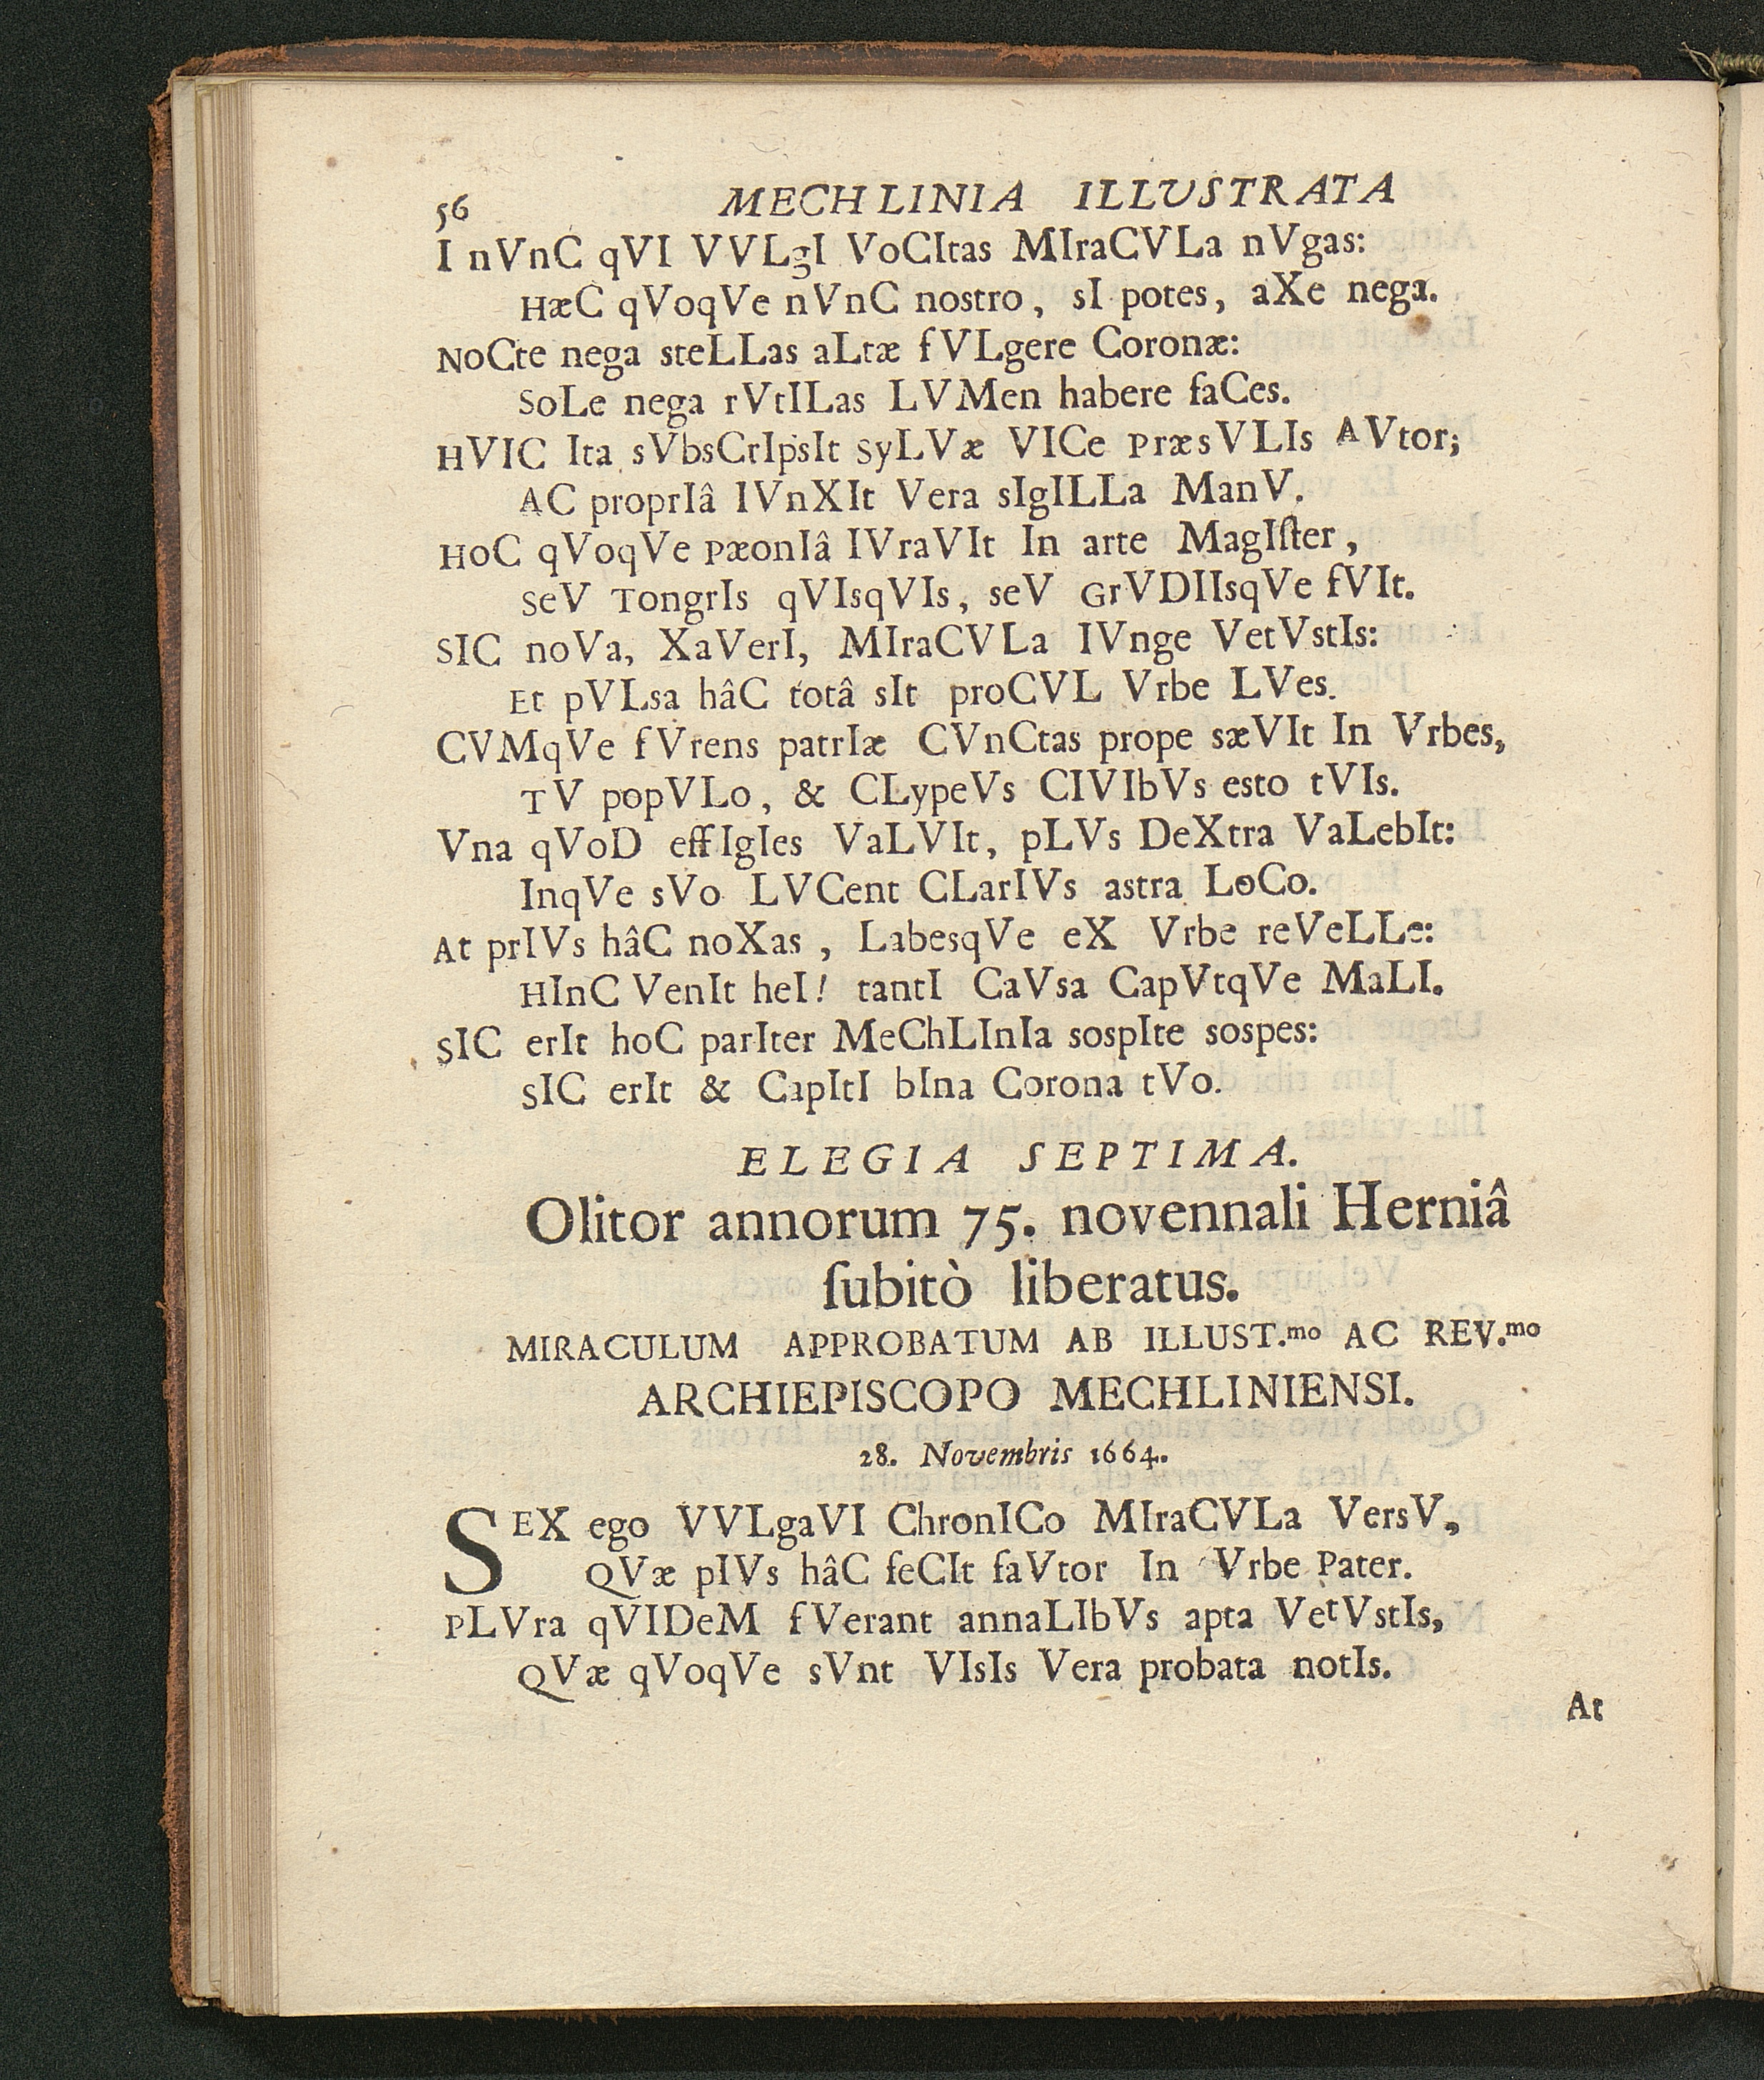 56 MECHLINIA ILLUSTRATA
I nVnC qVI VVLgI VoCItas MIraCVLa nVgas:
HæC qVoqVe nVnC nostro, sI potes, aXe nega.
NoCte nega steLLas aLtæ fVLgere Coronæ:
SoLe nega rVtILas LVMen habere faCes.
HVIC Ita sVbsCrIpsIt SyLVæ VICe PræsVLIs AVtor;
AC proprIâ IVnXIt Vera sIgILLa ManV.
HoC qVoqVe PæonIâ IVraVIt In arte MagIſter,
SeV TongrIs qVIsqVIs, seV GrVDIIsqVe fVIt.
SIC noVa, XaVerI, MIraCVLa IVnge VetVstIs:
Et pVLsa hâC totâ sIt proCVL Vrbe LVes.
CVMqVe fVrens patrIæ CVnCtas prope sæVIt In Vrbes,
TV popVLo, & CLypeVs CIVIbVs esto tVIs.
Vna qVoD effIgIes VaLVIt, pLVs DeXtra VaLebIt:
InqVe sVo LVCent CLarIVs astra LoCo.
At prIVs hâC noXas, LabesqVe eX Vrbe reVeLLe:
HInC VenIt heI! tantI CaVsa CapVtqVe MaLI.
SIC erIt hoC parIter MeChLInIa sospIte sospes:
SIC erIt & CapItI bIna Corona tVo.
ELEGIA SEPTIMA.
Olitor annorum 75. novennali Herniâ
ſubitò liberatus.
MIRACULUM APPROBATUM AB ILLUST.mo AC REV.mo
ARCHIEPISCOPO MECHLINIENSI.
28. Novembris 1664.
SEX ego VVLgaVI ChronICo MIraCVLa VersV,
QVæ pIVs hâC feCIt faVtor In Vrbe Pater.
PLVra qVIDeM fVerant annaLIbVs apta VetVstIs,
QVæ qVoqVe sVnt VIsIs Vera probata notIs.
At